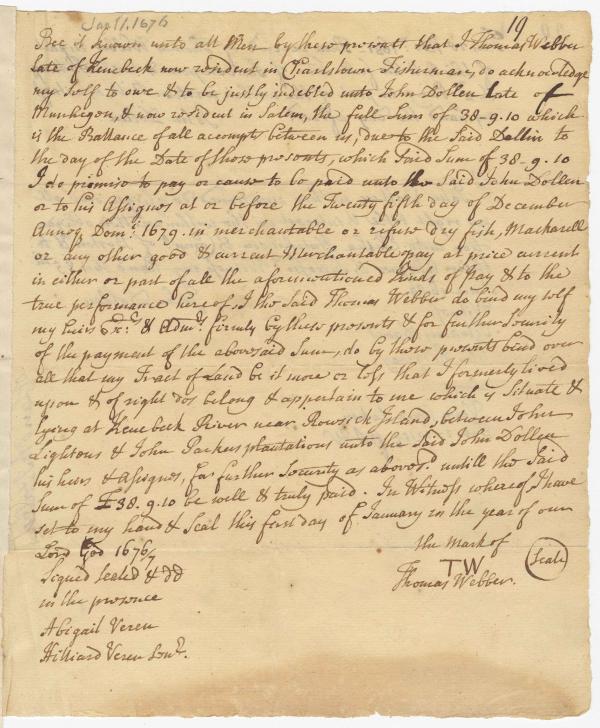 Jan 1, 1676
19
Bee it known unto all Men by these presents that I Thomas Webber
Late of Kenebeck now resident in Charlstown Fisherman, do acknowledge
my self to owe & to be justly indebted unto John Dollen Late of
Munhegon, & now resident in Salem, the full Sum of 38-9.10 which
is the Ballance of all accompts between us, due to the Said Dollin to
the day of the Date of those presents, which Said Sum of 38-9.10
I do promise to pay or cause to be paid unto the Said John Dollen
or to his Assignes at or before the Twenty fifth day of December
Annoq Dom: 1679. in merchantable or refuse dry fish, Mackarell
or any other good & current Merchantable pay at price current
in either or part of all the aforementioned kinds of pay & to the
true performance hereof I the Said Thomas Webber do bind my self
my heirs Exc: & Admrs. firmly by these presents & for further Security
of the payment of the abovesaid Sum, do by these presents bind over
all that my Tract of Land be it more or less that I formerly lived
upon & of right dos belong & appertain to me which is Situate &
lying at Kenebeck River near Rowsick Island, between John
Lightons & John Parkers plantations unto the Said John Dollen
his heirs & Assignes, for further Security as abovesd. untill the Said
Sum of £38.9.10 be well & truly paid. In Witness whereof I have
set to my hand & Seal this first day of January in the year of our
Lord God 1676/7
the Mark of
Signed Sealed & dd
T W
Seale
in the presence
Thomas Webber.
Abigail Veren
Hilliard Veren Senr.